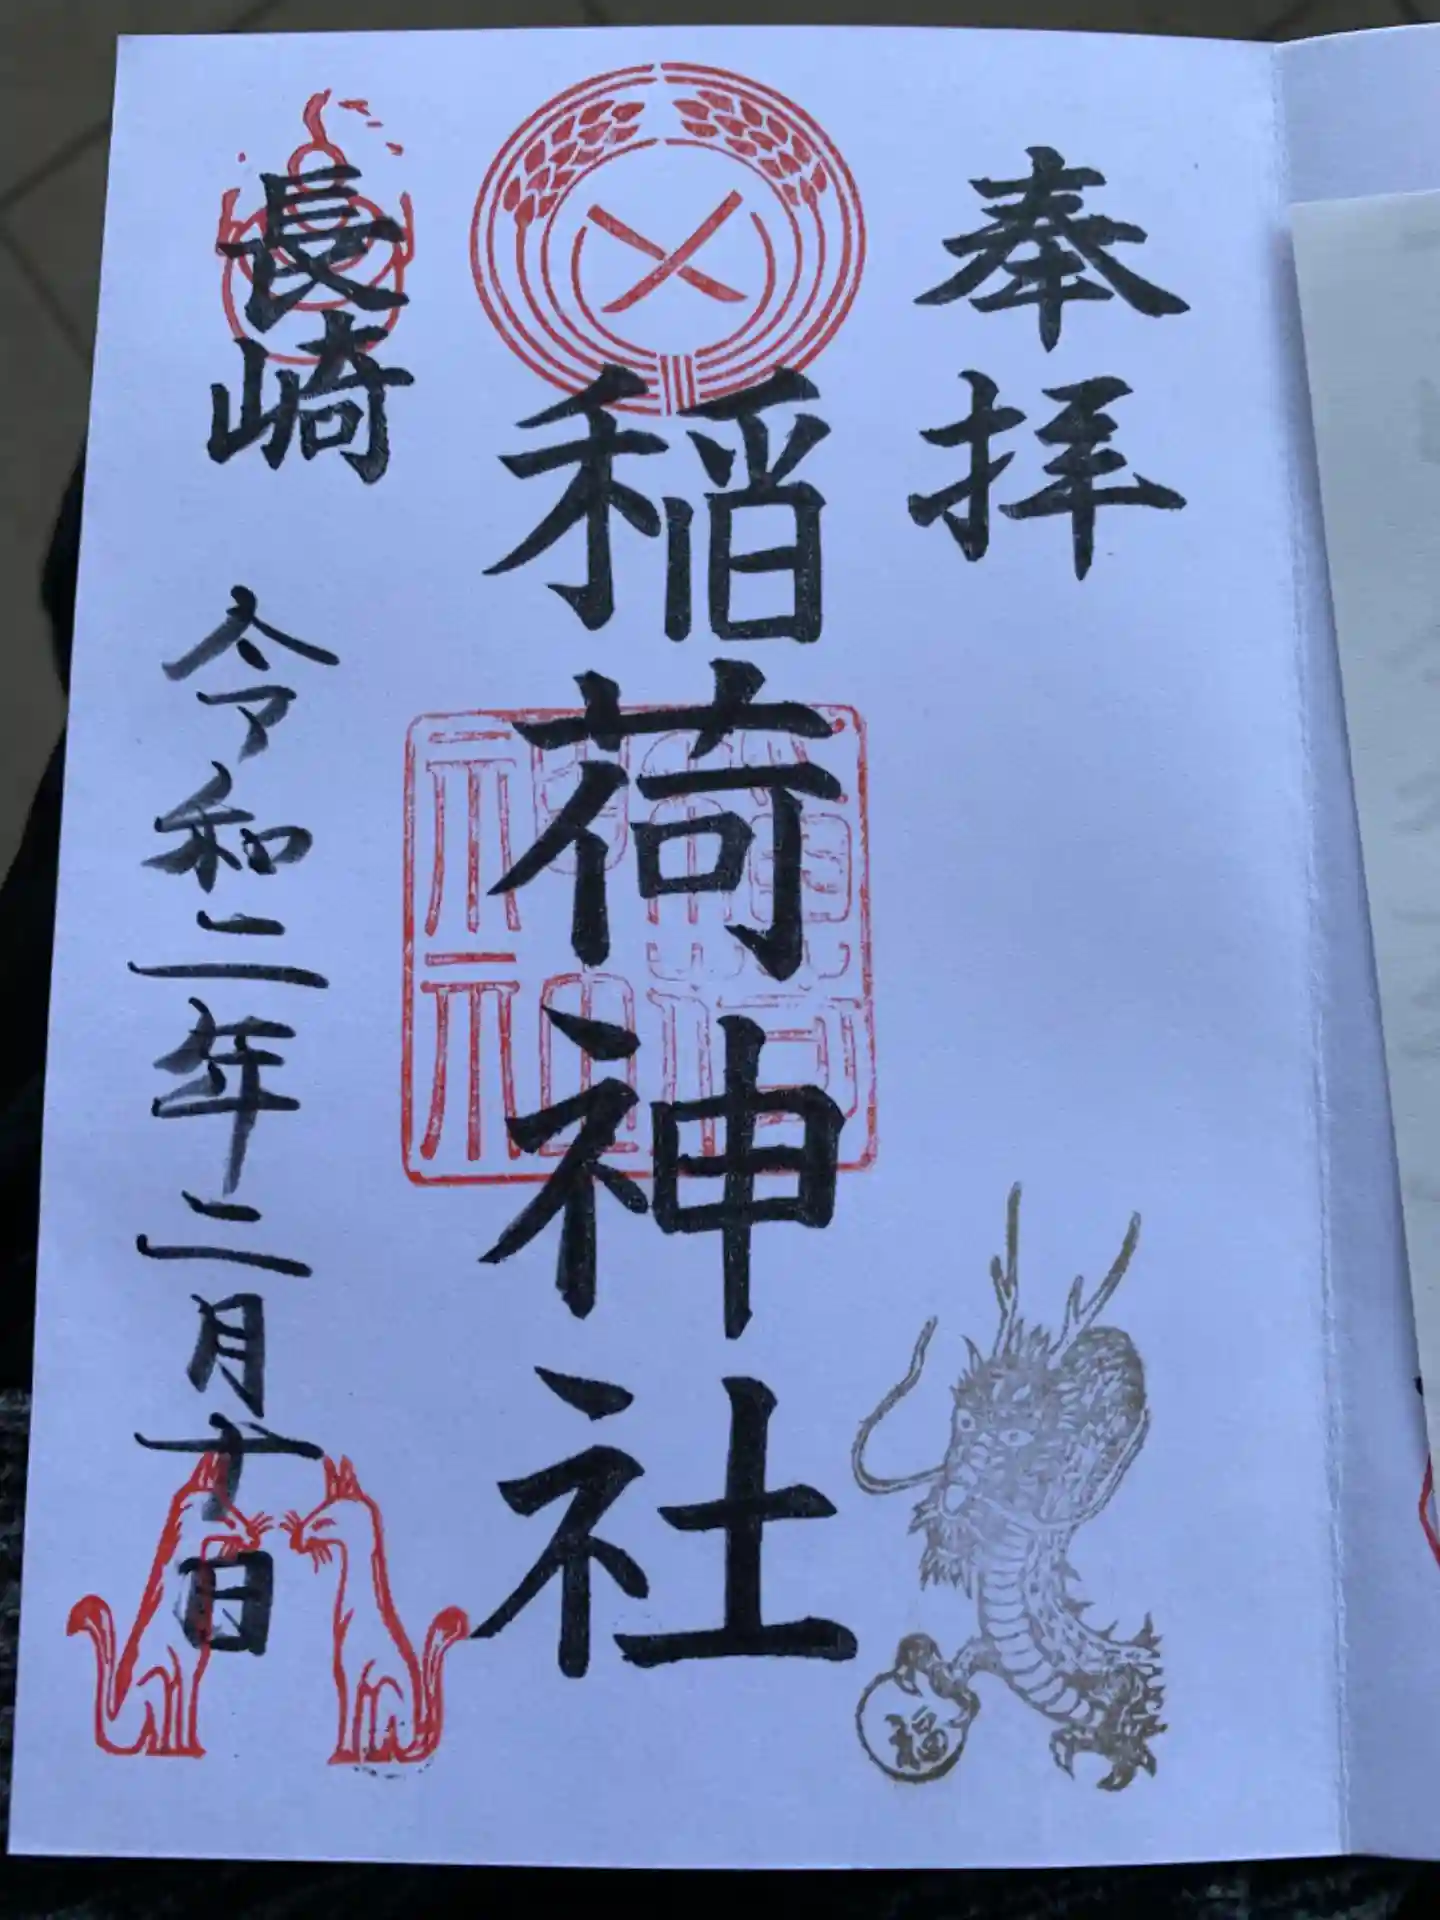 奉拝
稲荷神社
長崎
令和二年二月十日
福